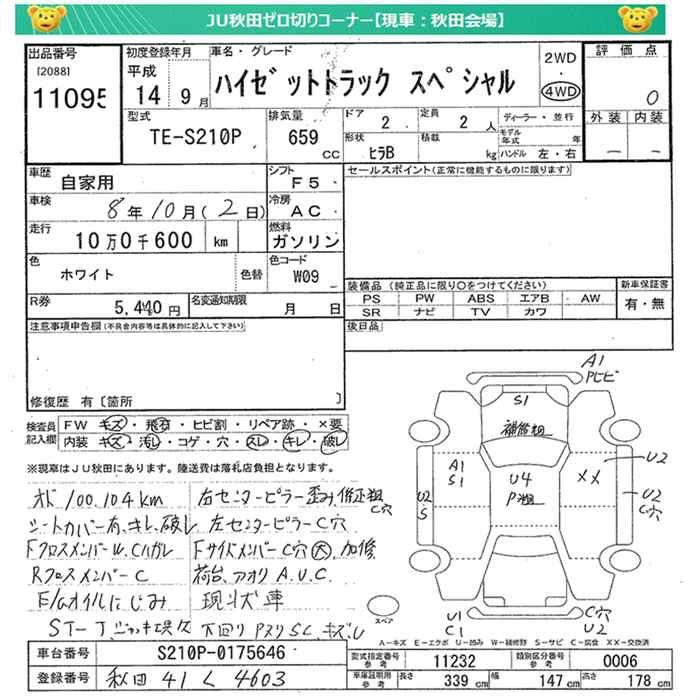 JU秋田ゼロ切りコーナー【現車：秋田会場】
出品番号
[2088]
11095
初度登録年月
平成
14 9月
車名・グレード
ハイゼットトラック スペシャル
2WD
・
4WD
評価点
0
外装 内装
― ―
型式
TE-S210P
排気量
659
CC
ドア
2
定員
2人
形状
ヒラB
積載
kg
ディーラー・並行
モデル年式 年
ハンドル 左・右
車歴
自家用
シフト
F5
車検
8年10月(2日)
冷房
AC
走行
10万0千600 km
燃料
ガソリン
色
ホワイト
色替
色コード
W09
R券
5,440円
名変通知期限
月 日
セールスポイント(正常に機能するものに限ります)
装備品 (純正品に限り○をつけてください)
PS PW ABS エアB AW
SR ナビ TV カワ
新車保証書
有・無
後日品
注意事項申告欄(不具合内容等は具体的に記入して下さい)
修復歴 有〔箇所 〕
検査員記入欄
FW キズ・飛石・ヒビ割・リペア跡・×要
内装 キズ・汚レ・コゲ・穴・スレ・キレ・破レ
※現車はJU秋田にあります。陸送費は落札店負担となります。
オド 100,104km
シートカバー有、キレ、破レ
FクロスメンバーW、Cハガレ
RクロスメンバーC
E/Gオイルにじみ
右センターピラー歪み、修正粗 C穴
左センターピラーC穴
FサイドメンバーC穴大、加修
荷台、アオリA.U.C.
現状車
下回りPヌリSC、キズU
A1
Pヒビ
S1
補修粗
A1
S1
U4
P粗
××
U2
U2
S
U2
C穴
U1
C1
C穴
U2
スペア
A－キズ E－エクボ U－凹み W－補修跡 S－サビ C－腐食 XX－交換済
車台番号
S210P-0175646
登録番号
秋田 41 く 4603
型式指定番号
参考
11232
類別区分番号
参考
0006
車庫証明用
参考
長さ
339 cm
幅
147 cm
高さ
178 cm